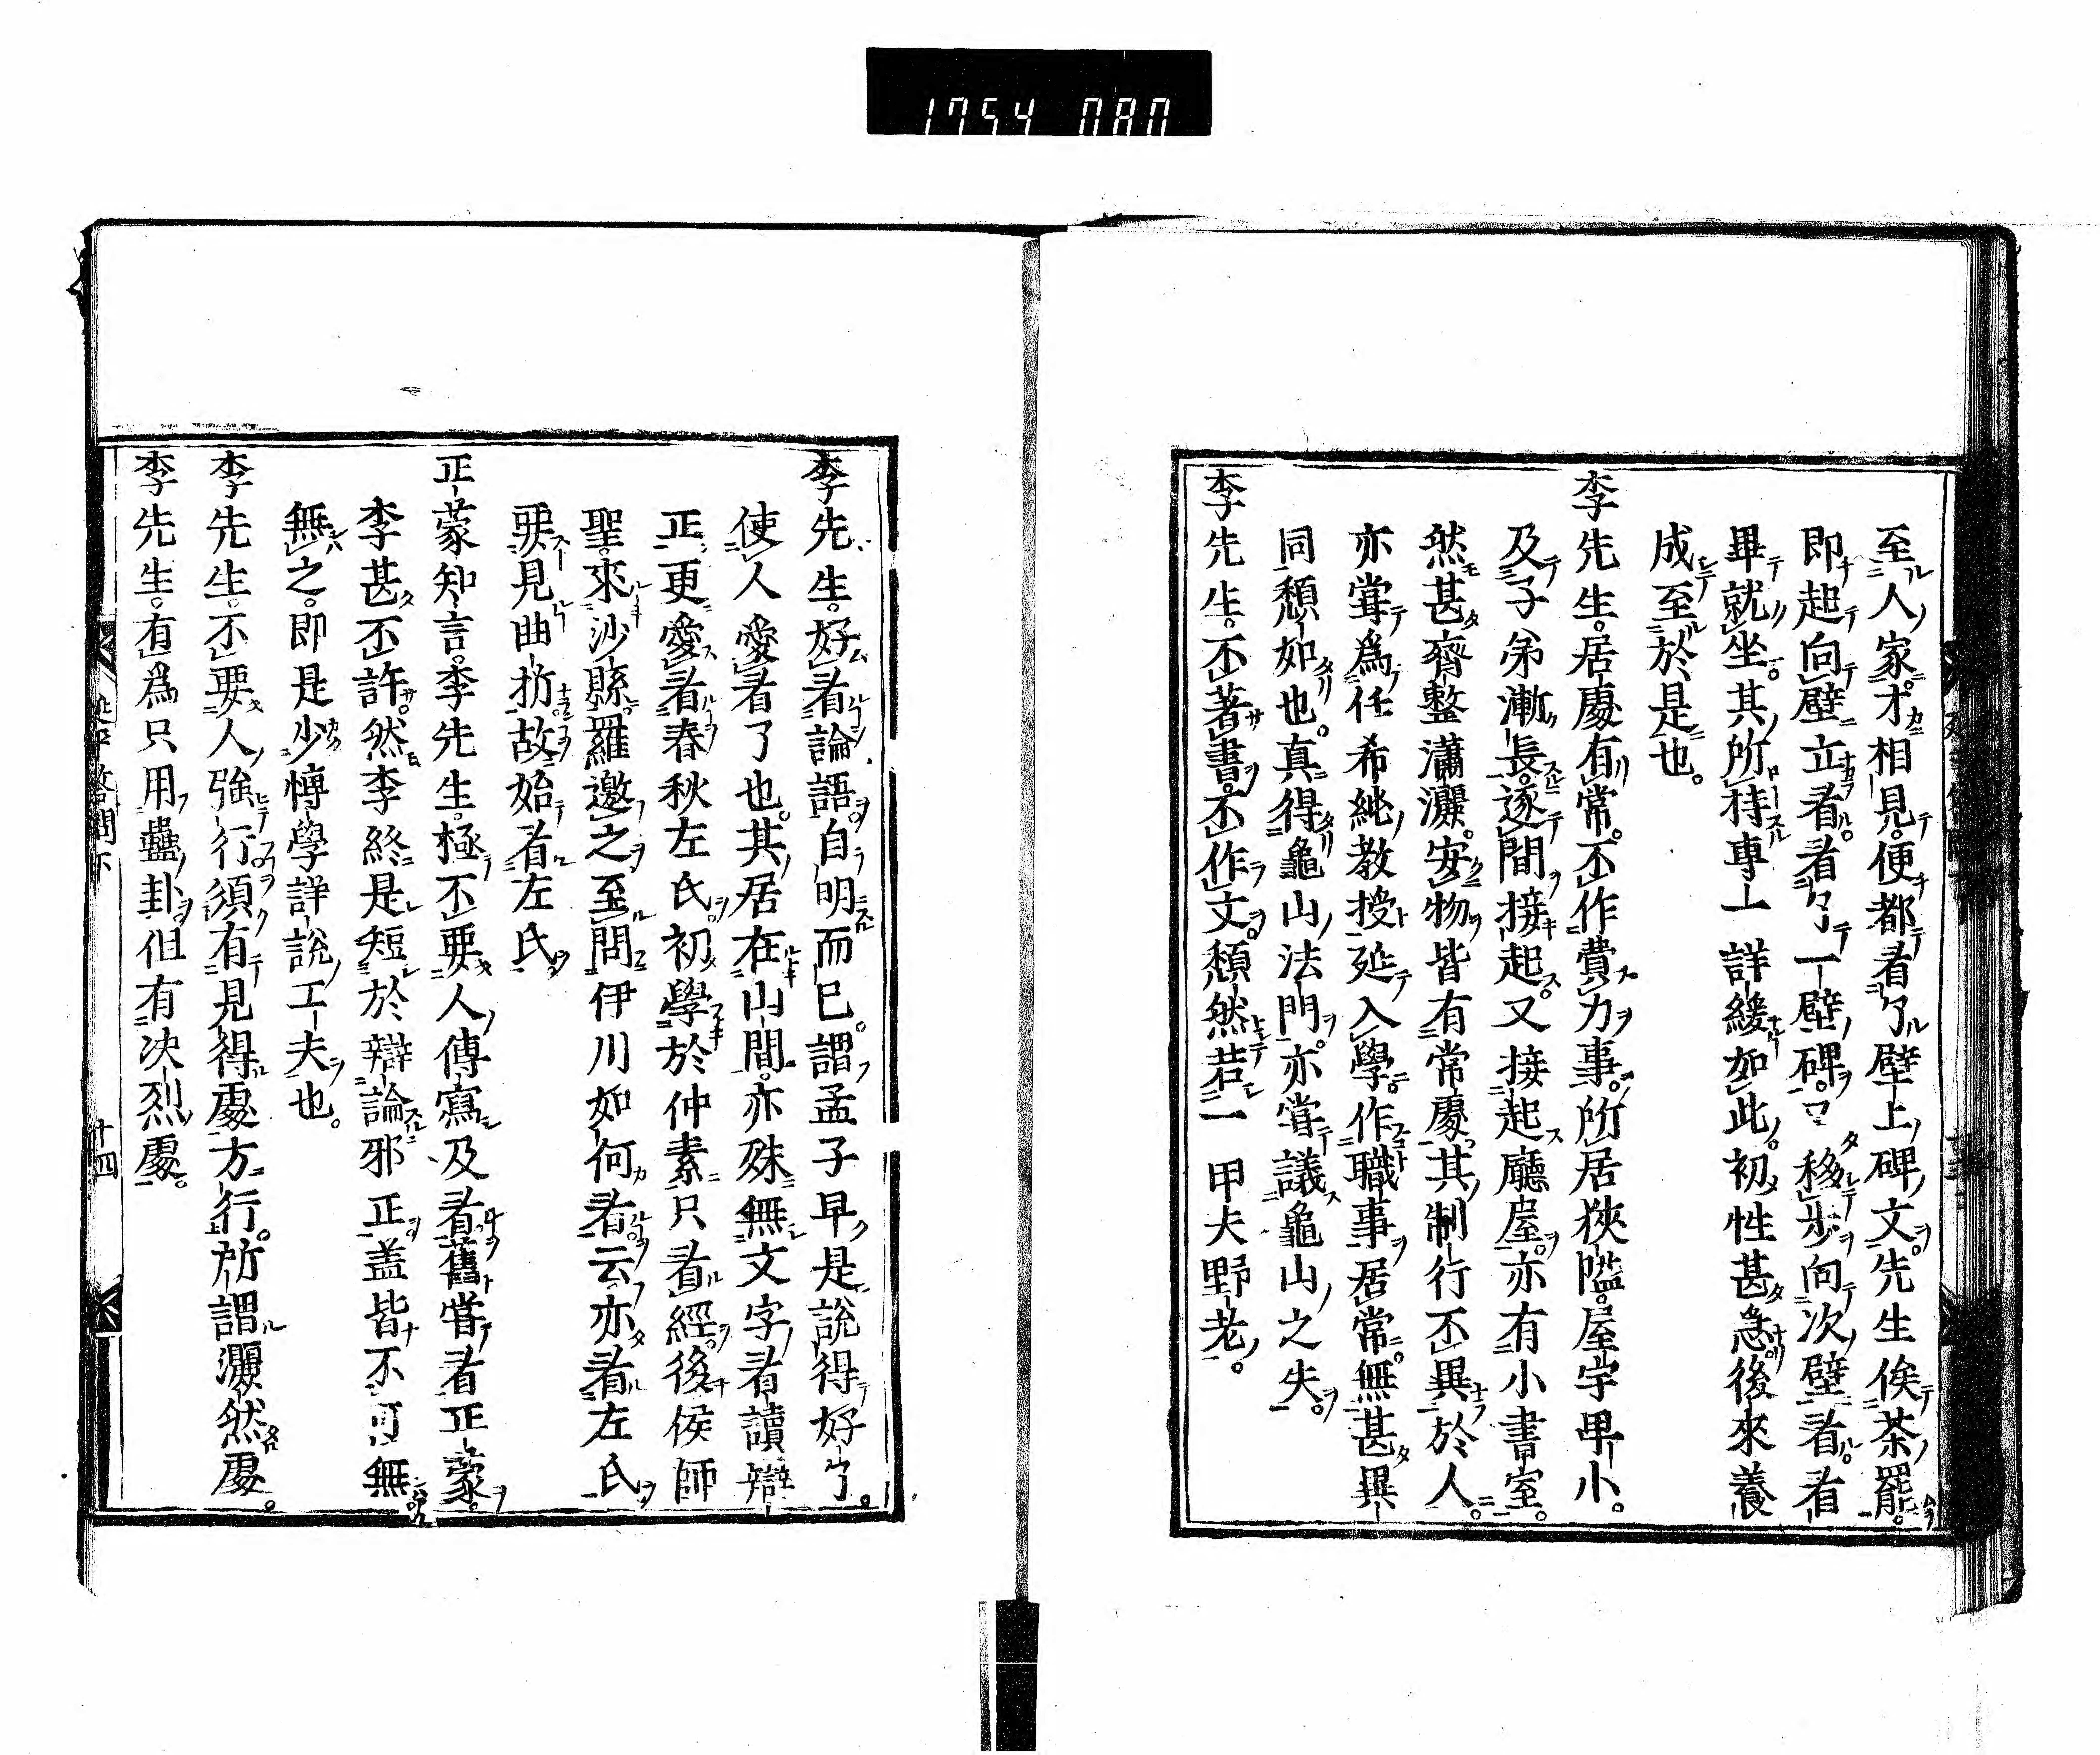 1754 080
至人家才相見便都看了壁上碑文先生俟茶罷
即起向壁立看看了一壁碑又移步向次壁看看
畢就坐其所持專一詳緩如此初性甚急後來養
成至於是也
李先生居處有常不作費力事所居狹隘屋宇卑小
及子弟漸長逐間接起又接起廳屋亦有小書室
然甚齊整瀟灑安物皆有常處其制行不異於人
亦嘗爲任希純教授延入學作職事居常無甚異
同頹如也真得龜山法門亦嘗議龜山之失
李先生不著書不作文頹然若一甲夫野老
李先生好看論語自明而已謂孟子早是說得好了
使人愛看了也其居在山間亦殊無文字看讀辯
正更愛看春秋左氏初學於仲素只看經後侯師
聖來沙縣羅邀之至問伊川如何看云亦看左氏
要見曲折故始看左氏
正蒙知言李先生極不要人傳寫及看舊嘗看正蒙
李甚不許然李終是短於辯論邪正蓋皆不可無
無之即是少博學詳說工夫也
李先生不要人強行須有見得處方行所謂灑然處
李先生有爲只用蠱卦但有决烈處
延平答問下
十四